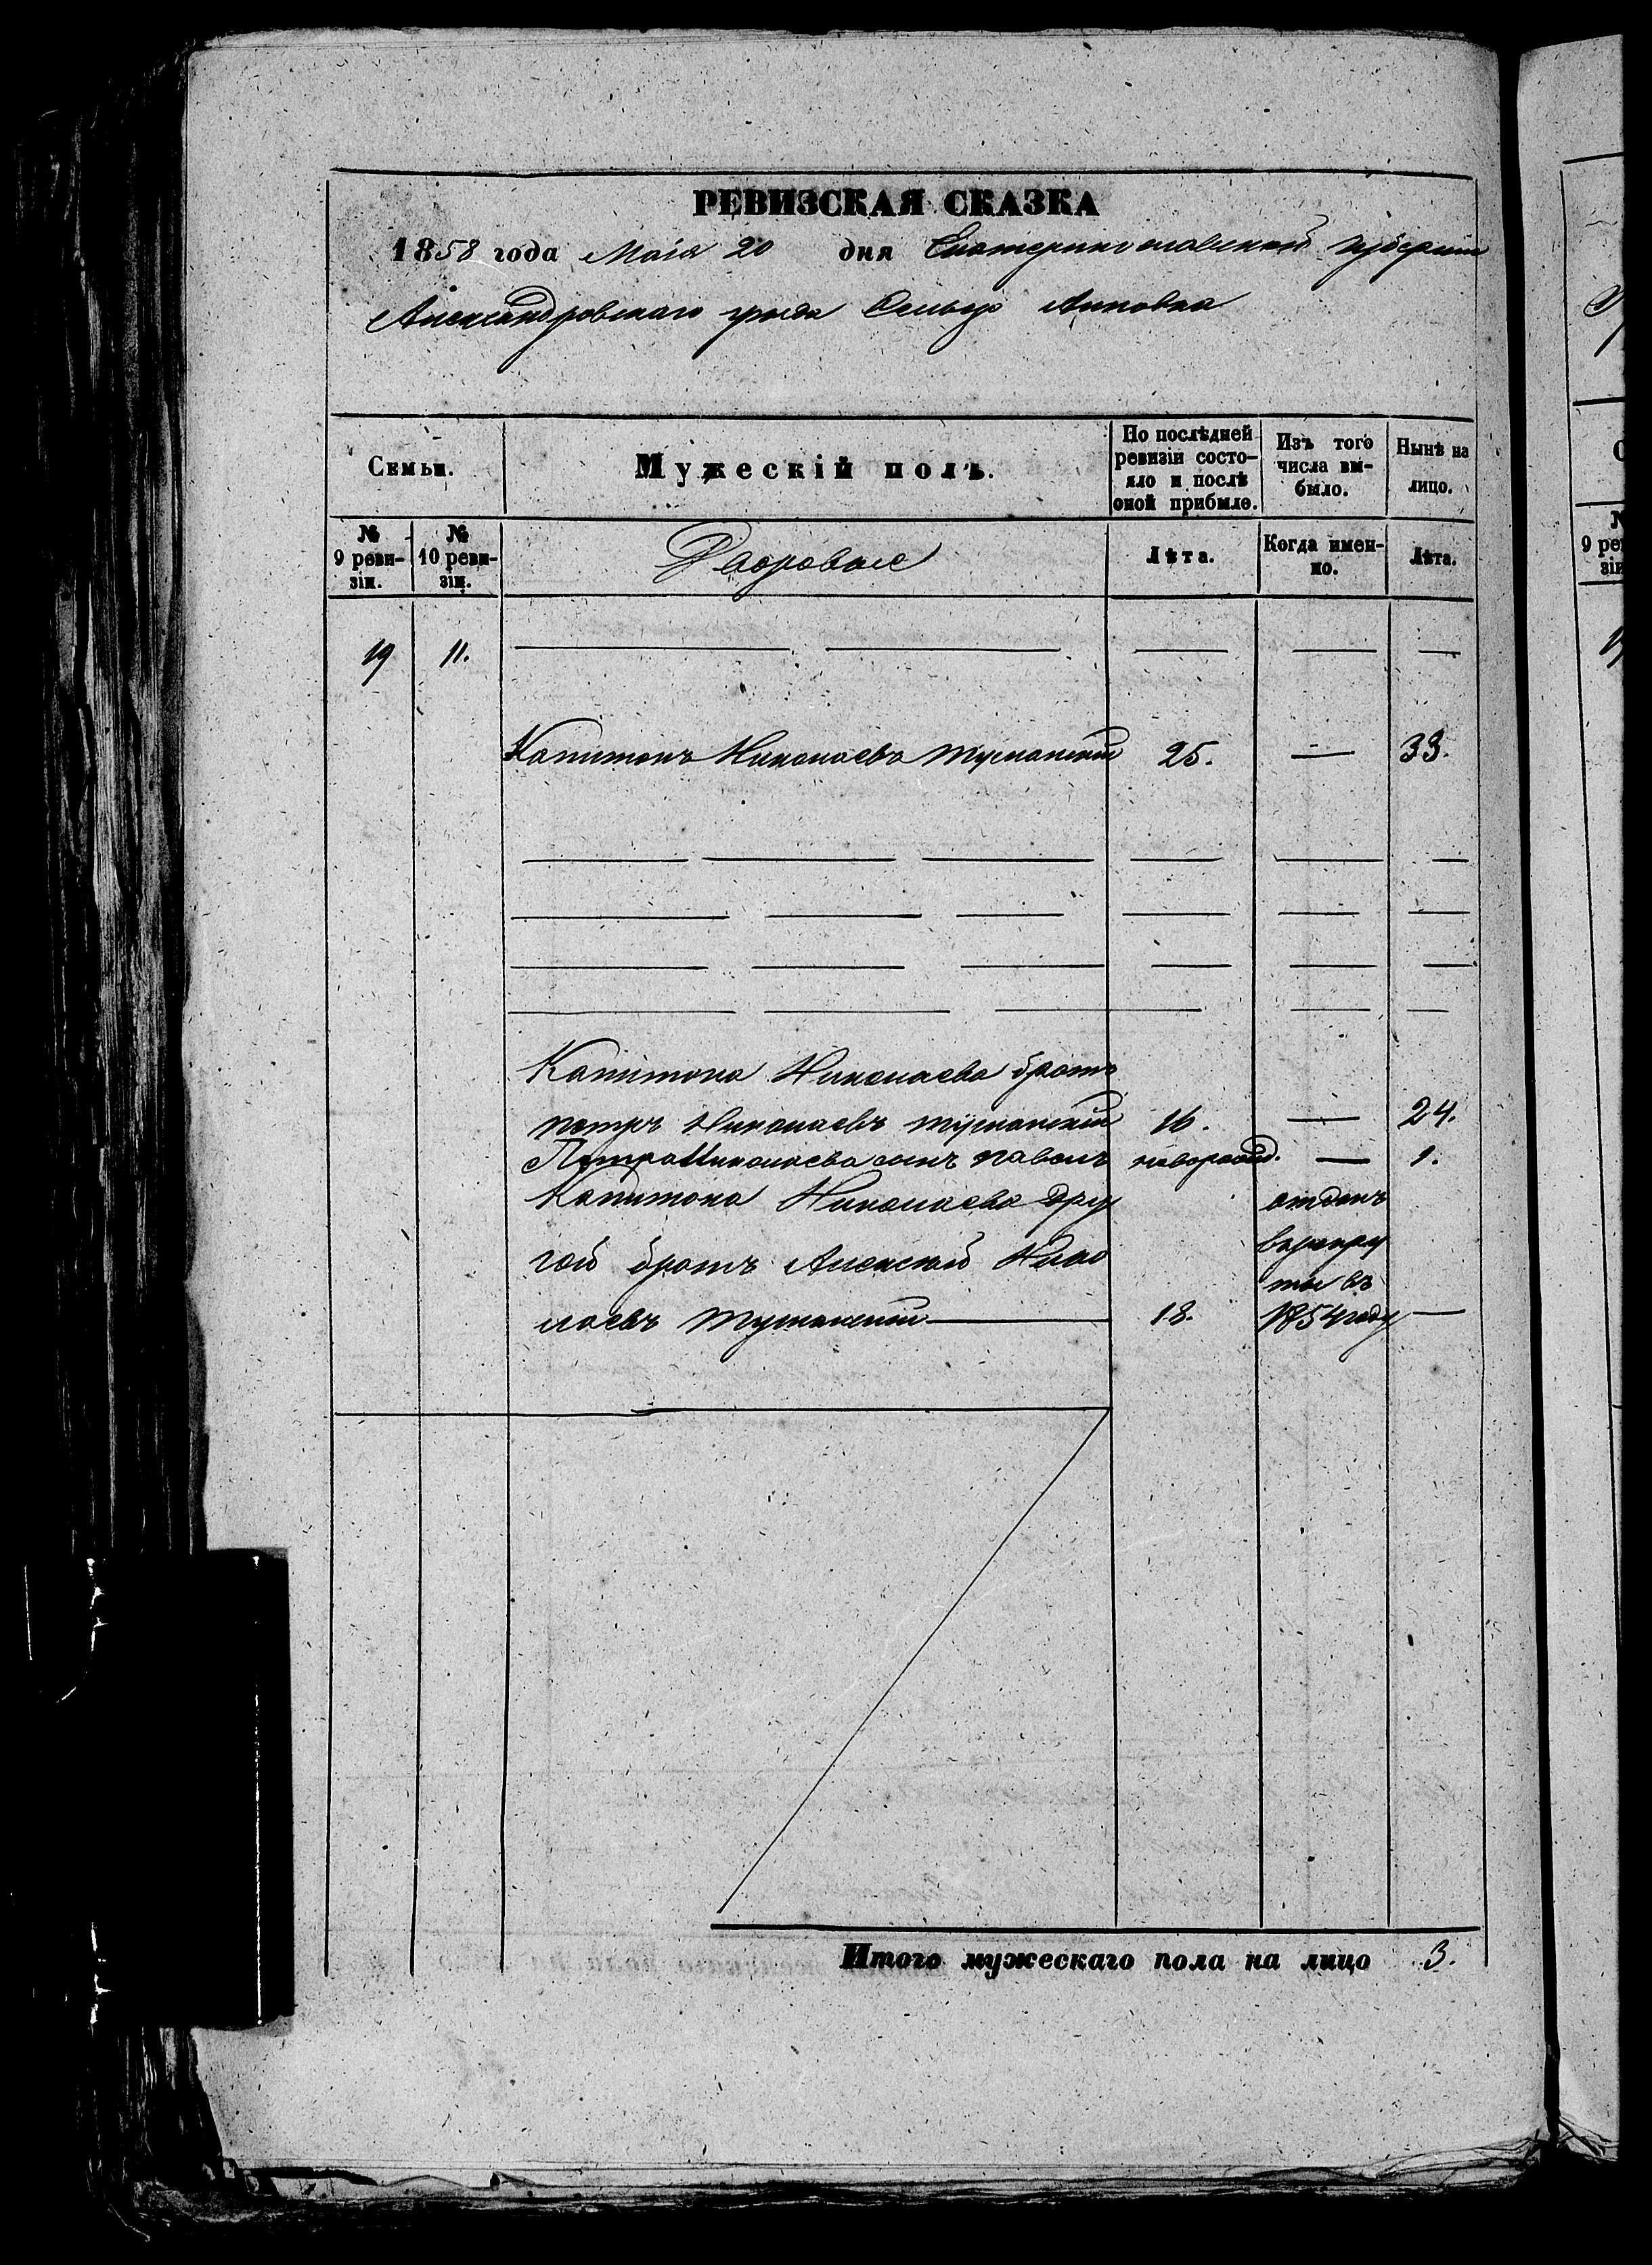 РЕВИЗСКАЯ СКАЗКА
1858 года Маія 20 дня Екатеринославской губерніи
Александровскаго уѣзда Сельцо Анновка
Семьи. Мужескій полъ. По послѣдней ревизіи состо- Изъ того Нынѣ на
яло и послѣ оной прибыло. числа вы- было. лицо.
№ 9 реви- зіи. № 10 реви- зіи. Дворовые Лѣта. Когда имен- но. Лѣта.
19 11.
Капитонъ Николаевъ Туманскій 25. — 33.
Капитона Николаева братъ
петръ Николаевъ туманскій 16. — 24.
Петра Николаева сынъ павелъ новорожд. — 1.
Капитона Николаева дру отданъ
гой братъ Алексѣй Нико врекру
ты въ
лаевъ Туманскій 18. 1854 году —
Итого мужескаго пола на лицо 3.
№
9 ре
зі